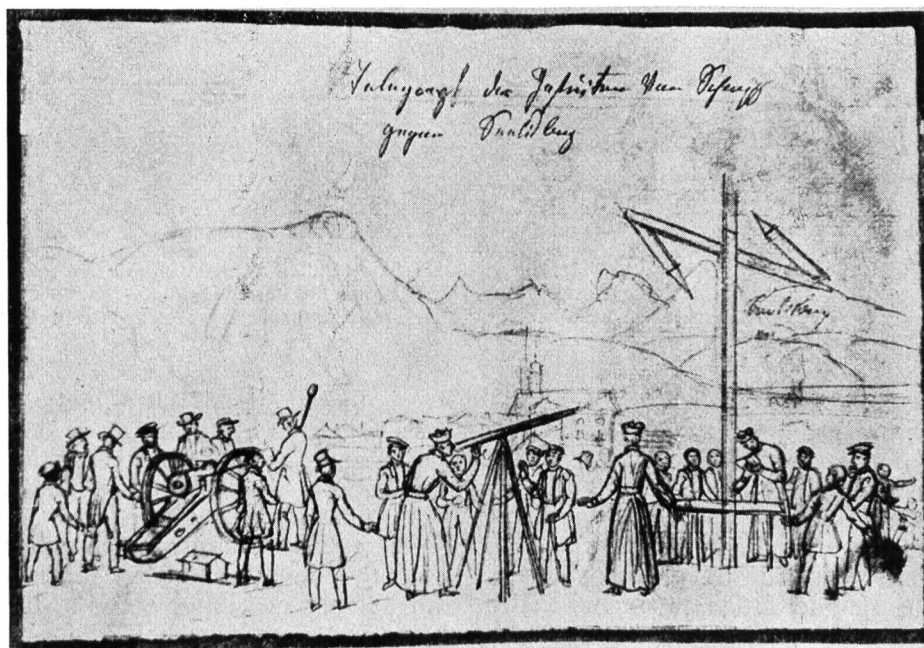 Telegraph der Jesuiten Von Schwyz
gegen Seelisberg
Seelisberg